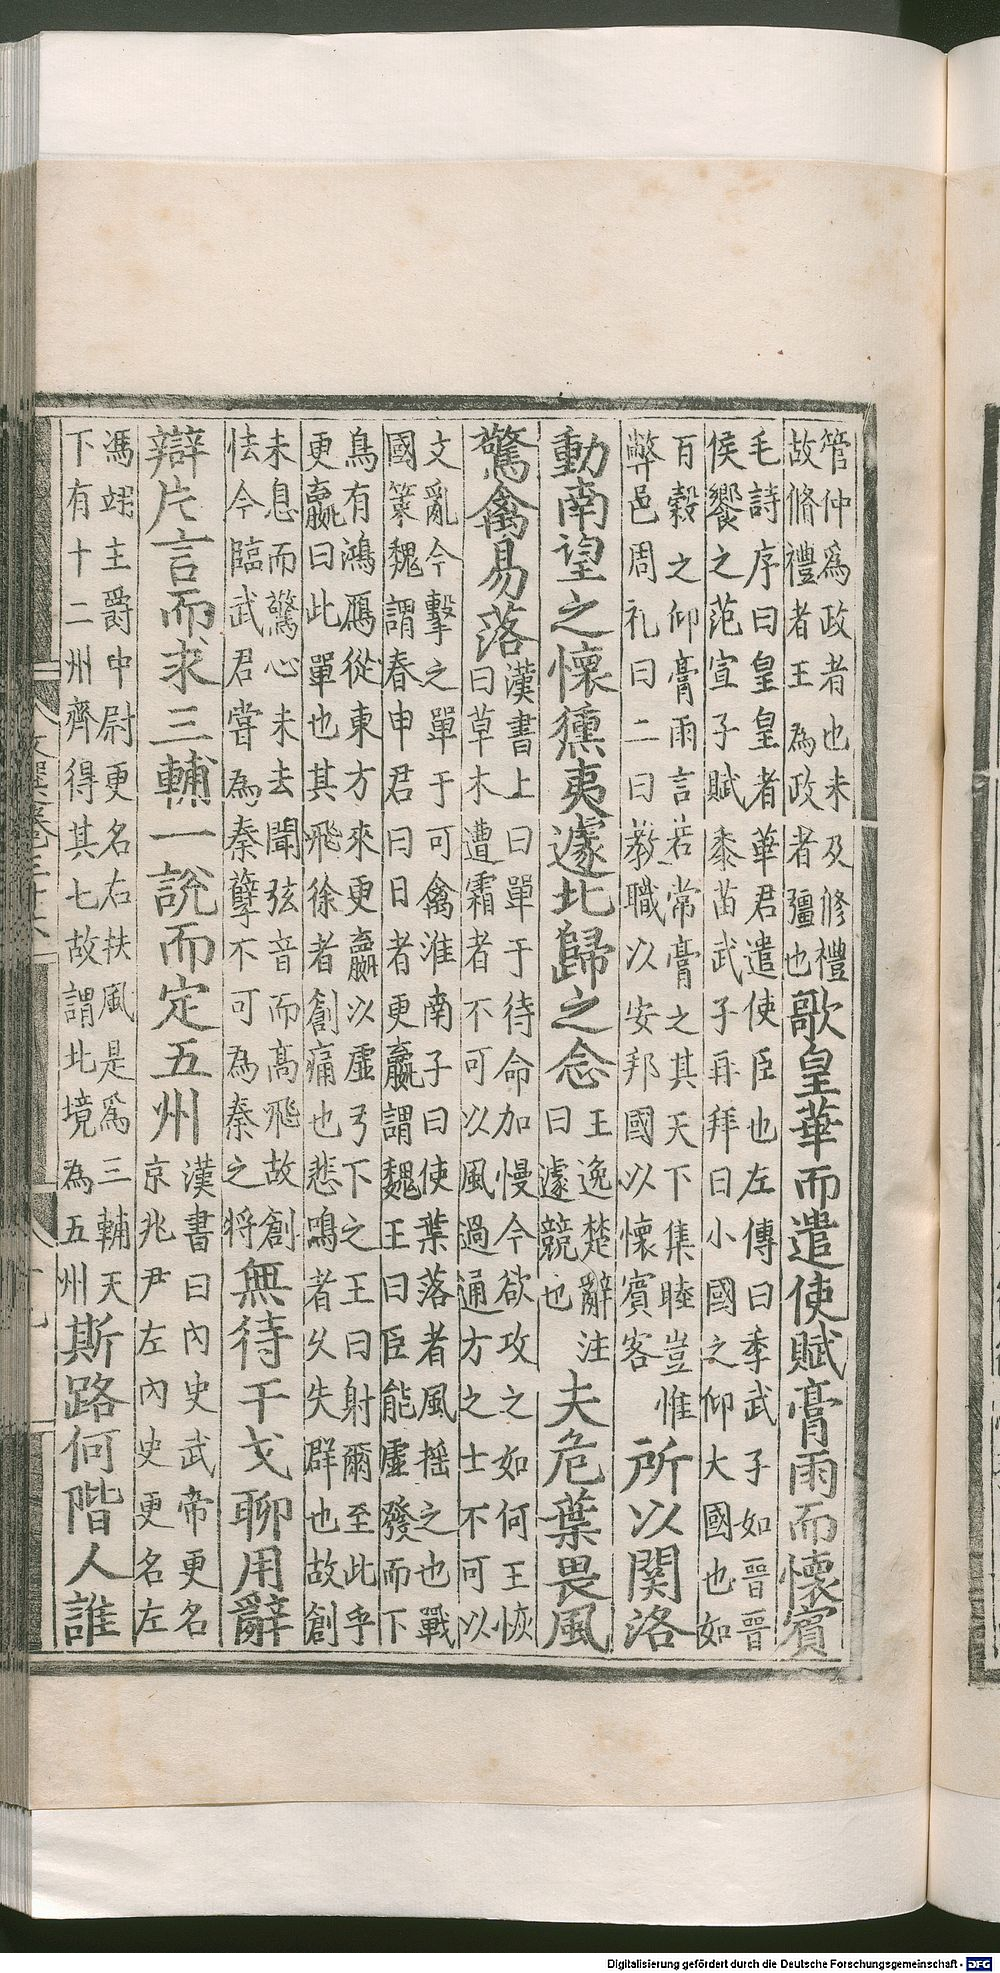 管仲爲政者也未及修禮
故脩禮者王爲政者彊也歌皇華而遣使賦膏雨而懷賓
毛詩序曰皇皇者華君遣使臣也左傳曰季武子如晉晉
侯饗之范宣子賦黍苗武子再拜曰小國之仰大國也如
百穀之仰膏雨言若常膏之其天下集睦豈惟
弊邑周礼曰二曰教職以安邦國以懷賓客所以関洛
動南望之懷獯夷遽北歸之念王逸楚辭注
曰遽競也夫危葉畏風
驚禽易落漢書上曰單于待命加慢今欲攻之如何王恢
曰草木遭霜者不可以風過通方之士不可以
文亂今擊之單于可禽淮南子曰使葉落者風搖之也戰
國策魏謂春申君曰日者更羸謂魏王曰臣能虛發而下
鳥有鴻鴈從東方來更羸以虛弓下之王曰射爾至此乎
更羸曰此單也其飛徐者創痛也悲鳴者乆失群也故創
未息而驚心未去聞弦音而高飛故創
怯今臨武君嘗為秦孽不可為秦之将無待干戈聊用辭
辯片言而求三輔一說而定五州漢書曰內史武帝更名
京兆尹左內史更名左
馮翊主爵中尉更名右扶風是爲三輔天
下有十二州齊得其七故謂北境為五州斯路何階人誰
Digitalisierung gefördert durch die Deutsche Forschungsgemeinschaft - DFG